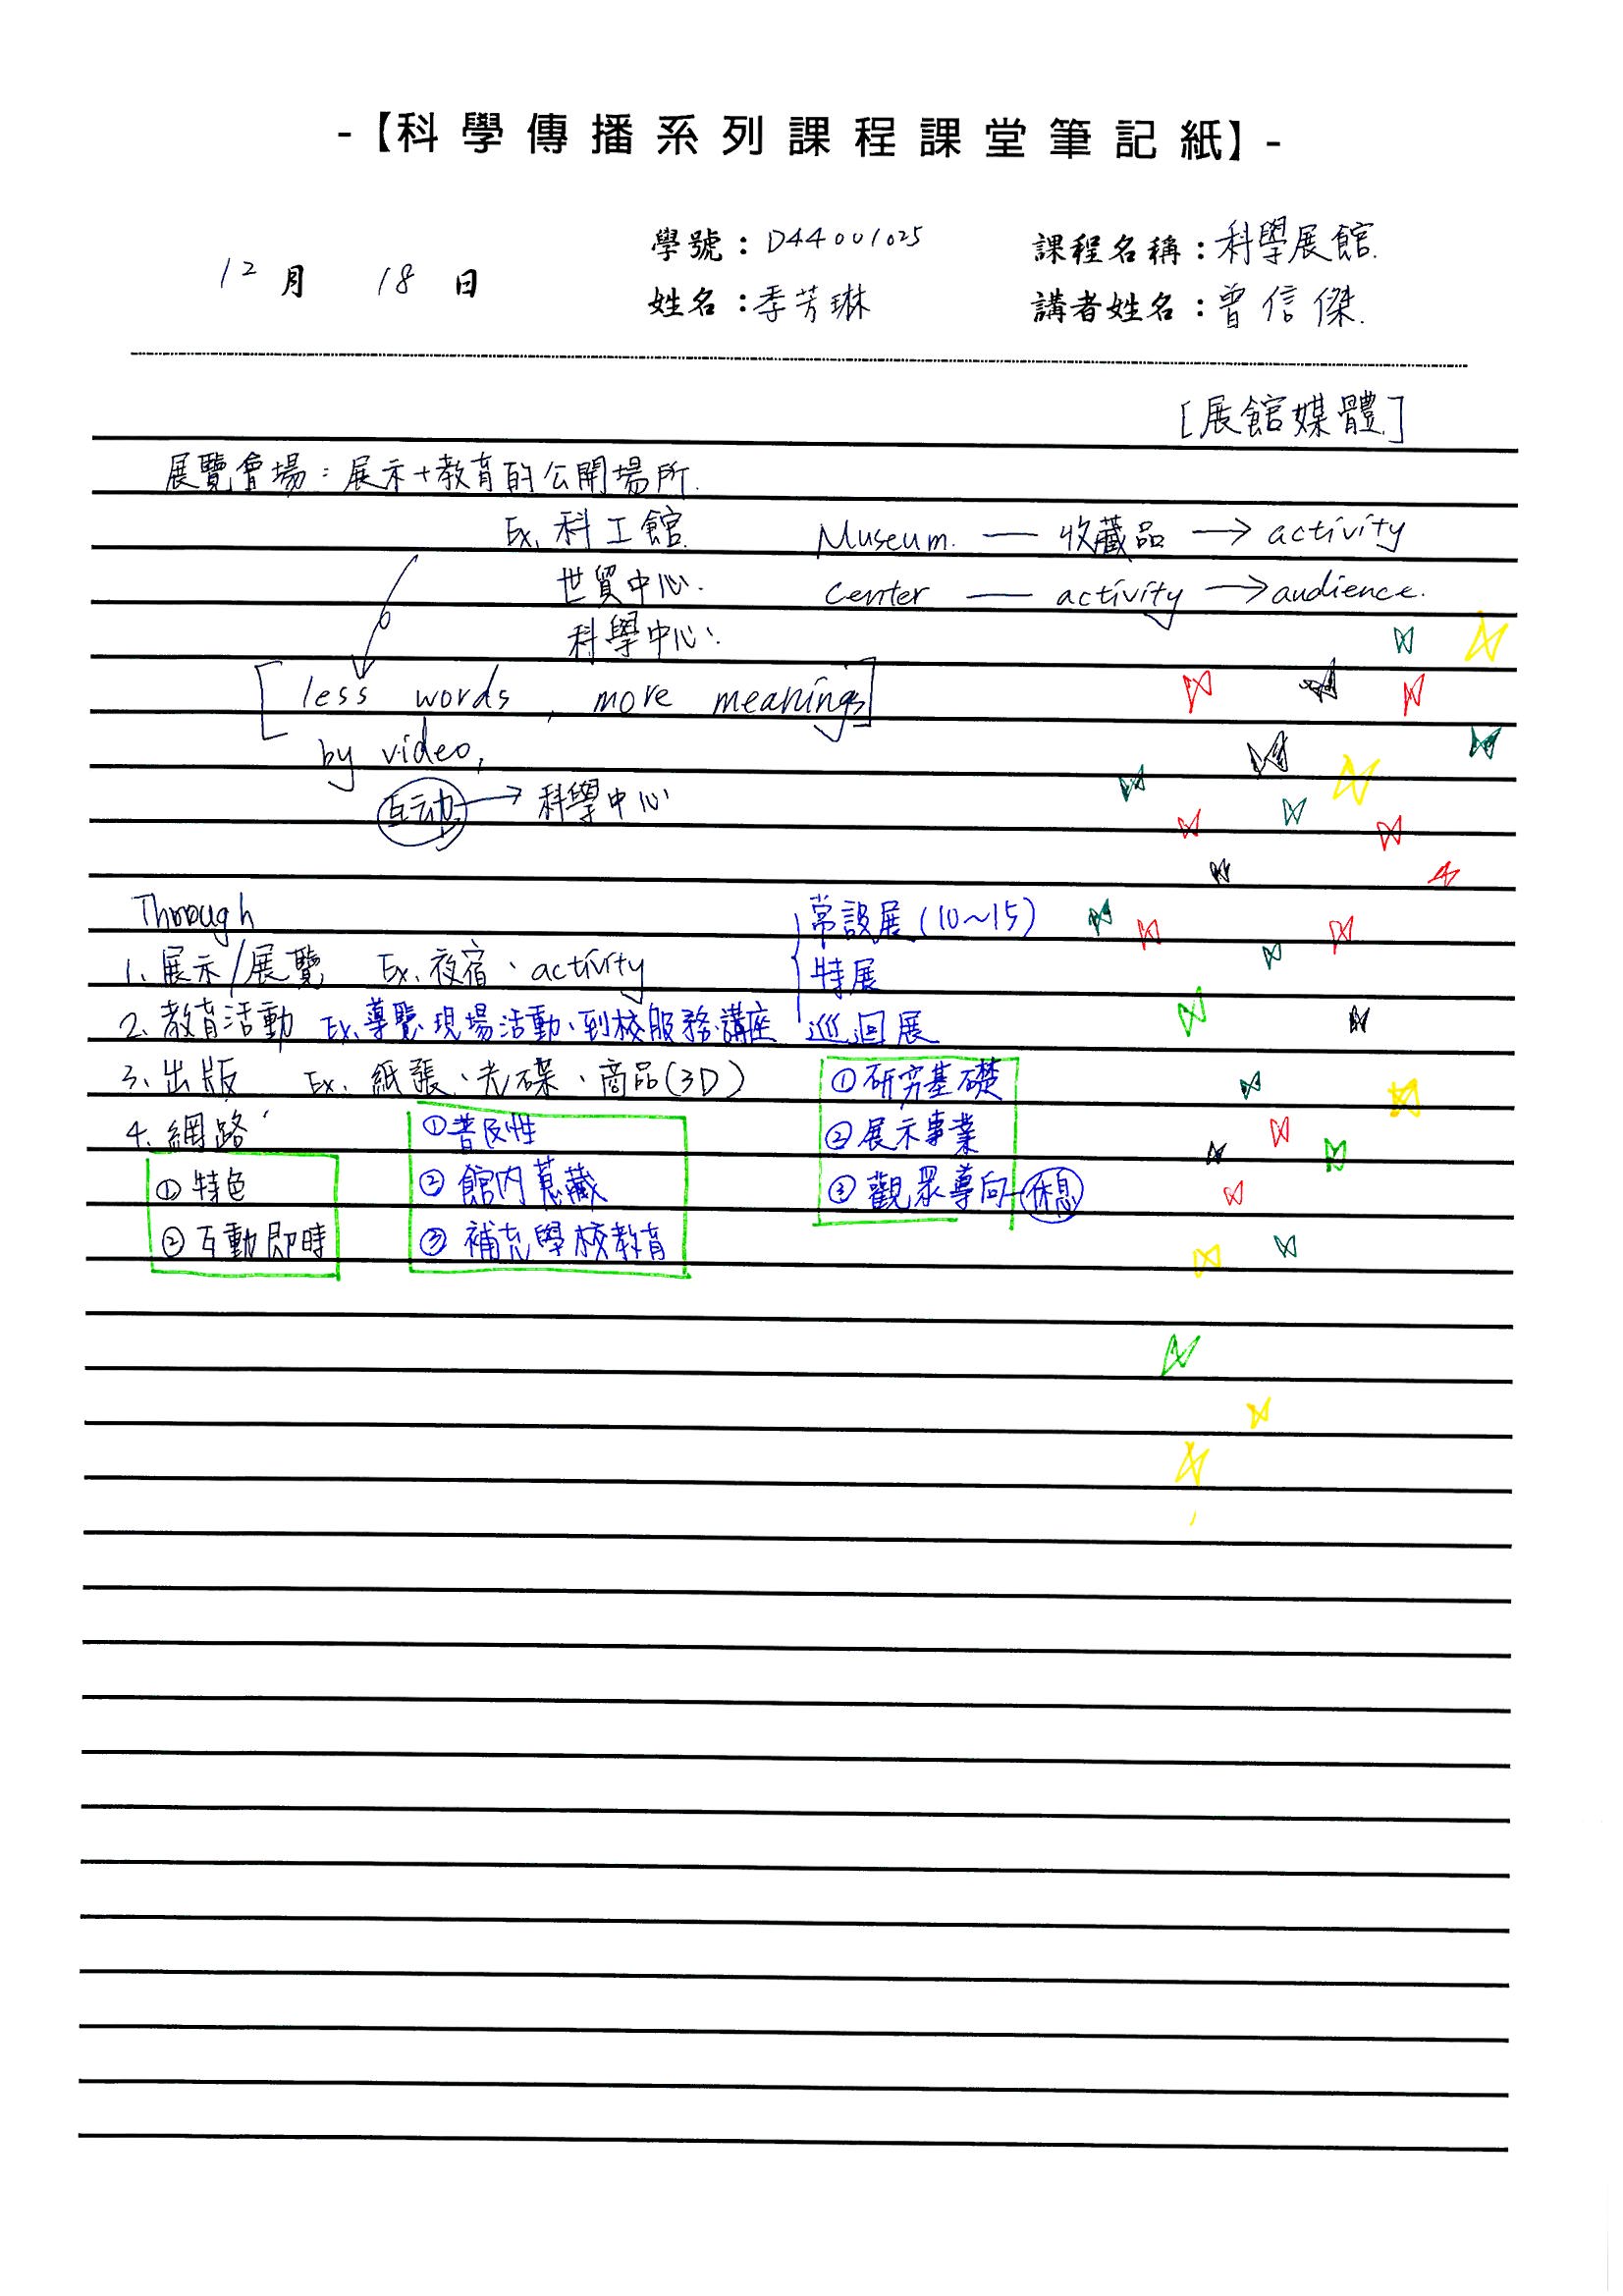 -【科學傳播系列課程課堂筆記紙】-
學號：D44001025 課程名稱：科學展館.
12月 18日
姓名：季芳琳 講者姓名：曾信傑.
[展館媒體]
展覽會場：展示+教育的公開場所.
Ex. 科工館. Museum. — 收藏品 → activity
世貿中心. center — activity → audience.
科學中心.
[less words, more meanings]
by video,
互动 → 科學中心
Through 常設展(10~15)
1. 展示/展覽 Ex. 夜宿、activity 特展
2. 教育活動 Ex. 導覽、現場活動、到校服務、講座 巡迴展
3. 出版 Ex. 紙張、光碟、商品(3D) ①研究基礎
4. 網路 ①普及性 ②展示事業
①特色 ②館內蒐藏 ③觀眾導向－休息
②互動即時 ③補充學校教育